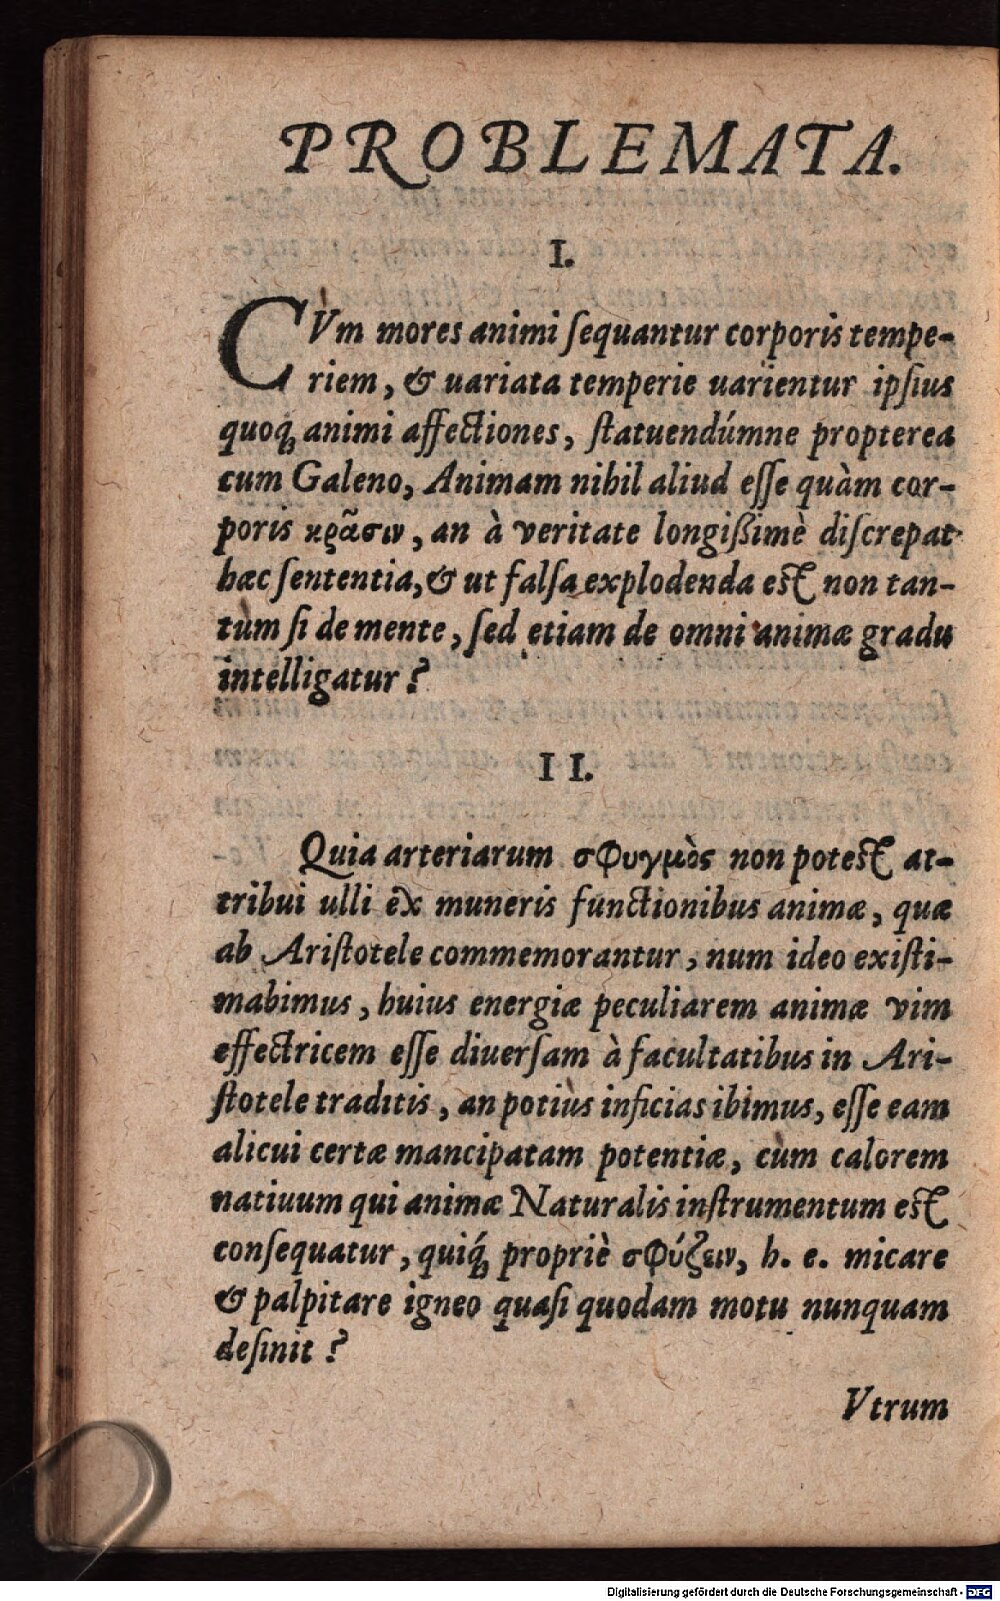 PROBLEMATA.
I.
CVm mores animi ſequantur corporis tempe-
riem, & uariata temperie uarientur ipſius
quoq́; animi affectiones, ſtatuendúmne propterea
cum Galeno, Animam nihil aliud eſſe quàm cor-
poris κρᾶσιν, an à veritate longißimè diſcrepat
hæc ſententia, & ut falſa explodenda est non tan-
tùm ſi de mente, ſed etiam de omni animæ gradu
intelligatur?
II.
Quia arteriarum σφυγμὸς non potest at-
tribui ulli êx muneris functionibus animæ, quæ
ab Ariſtotele commemorantur, num ideo exiſti-
mabimus, huius energiæ peculiarem animæ vim
effectricem eſſe diuerſam à facultatibus in Ari-
ſtotele traditis, an potiùs inficias ibimus, eſſe eam
alicui certæ mancipatam potentiæ, cùm calorem
natiuum qui animæ Naturalis inſtrumentum est
conſequatur, quiq́; propriè σφύζειν, h. e. micare
& palpitare igneo quaſi quodam motu nunquam
deſinit?
Vtrum
Digitalisierung gefördert durch die Deutsche Forschungsgemeinschaft - DFG